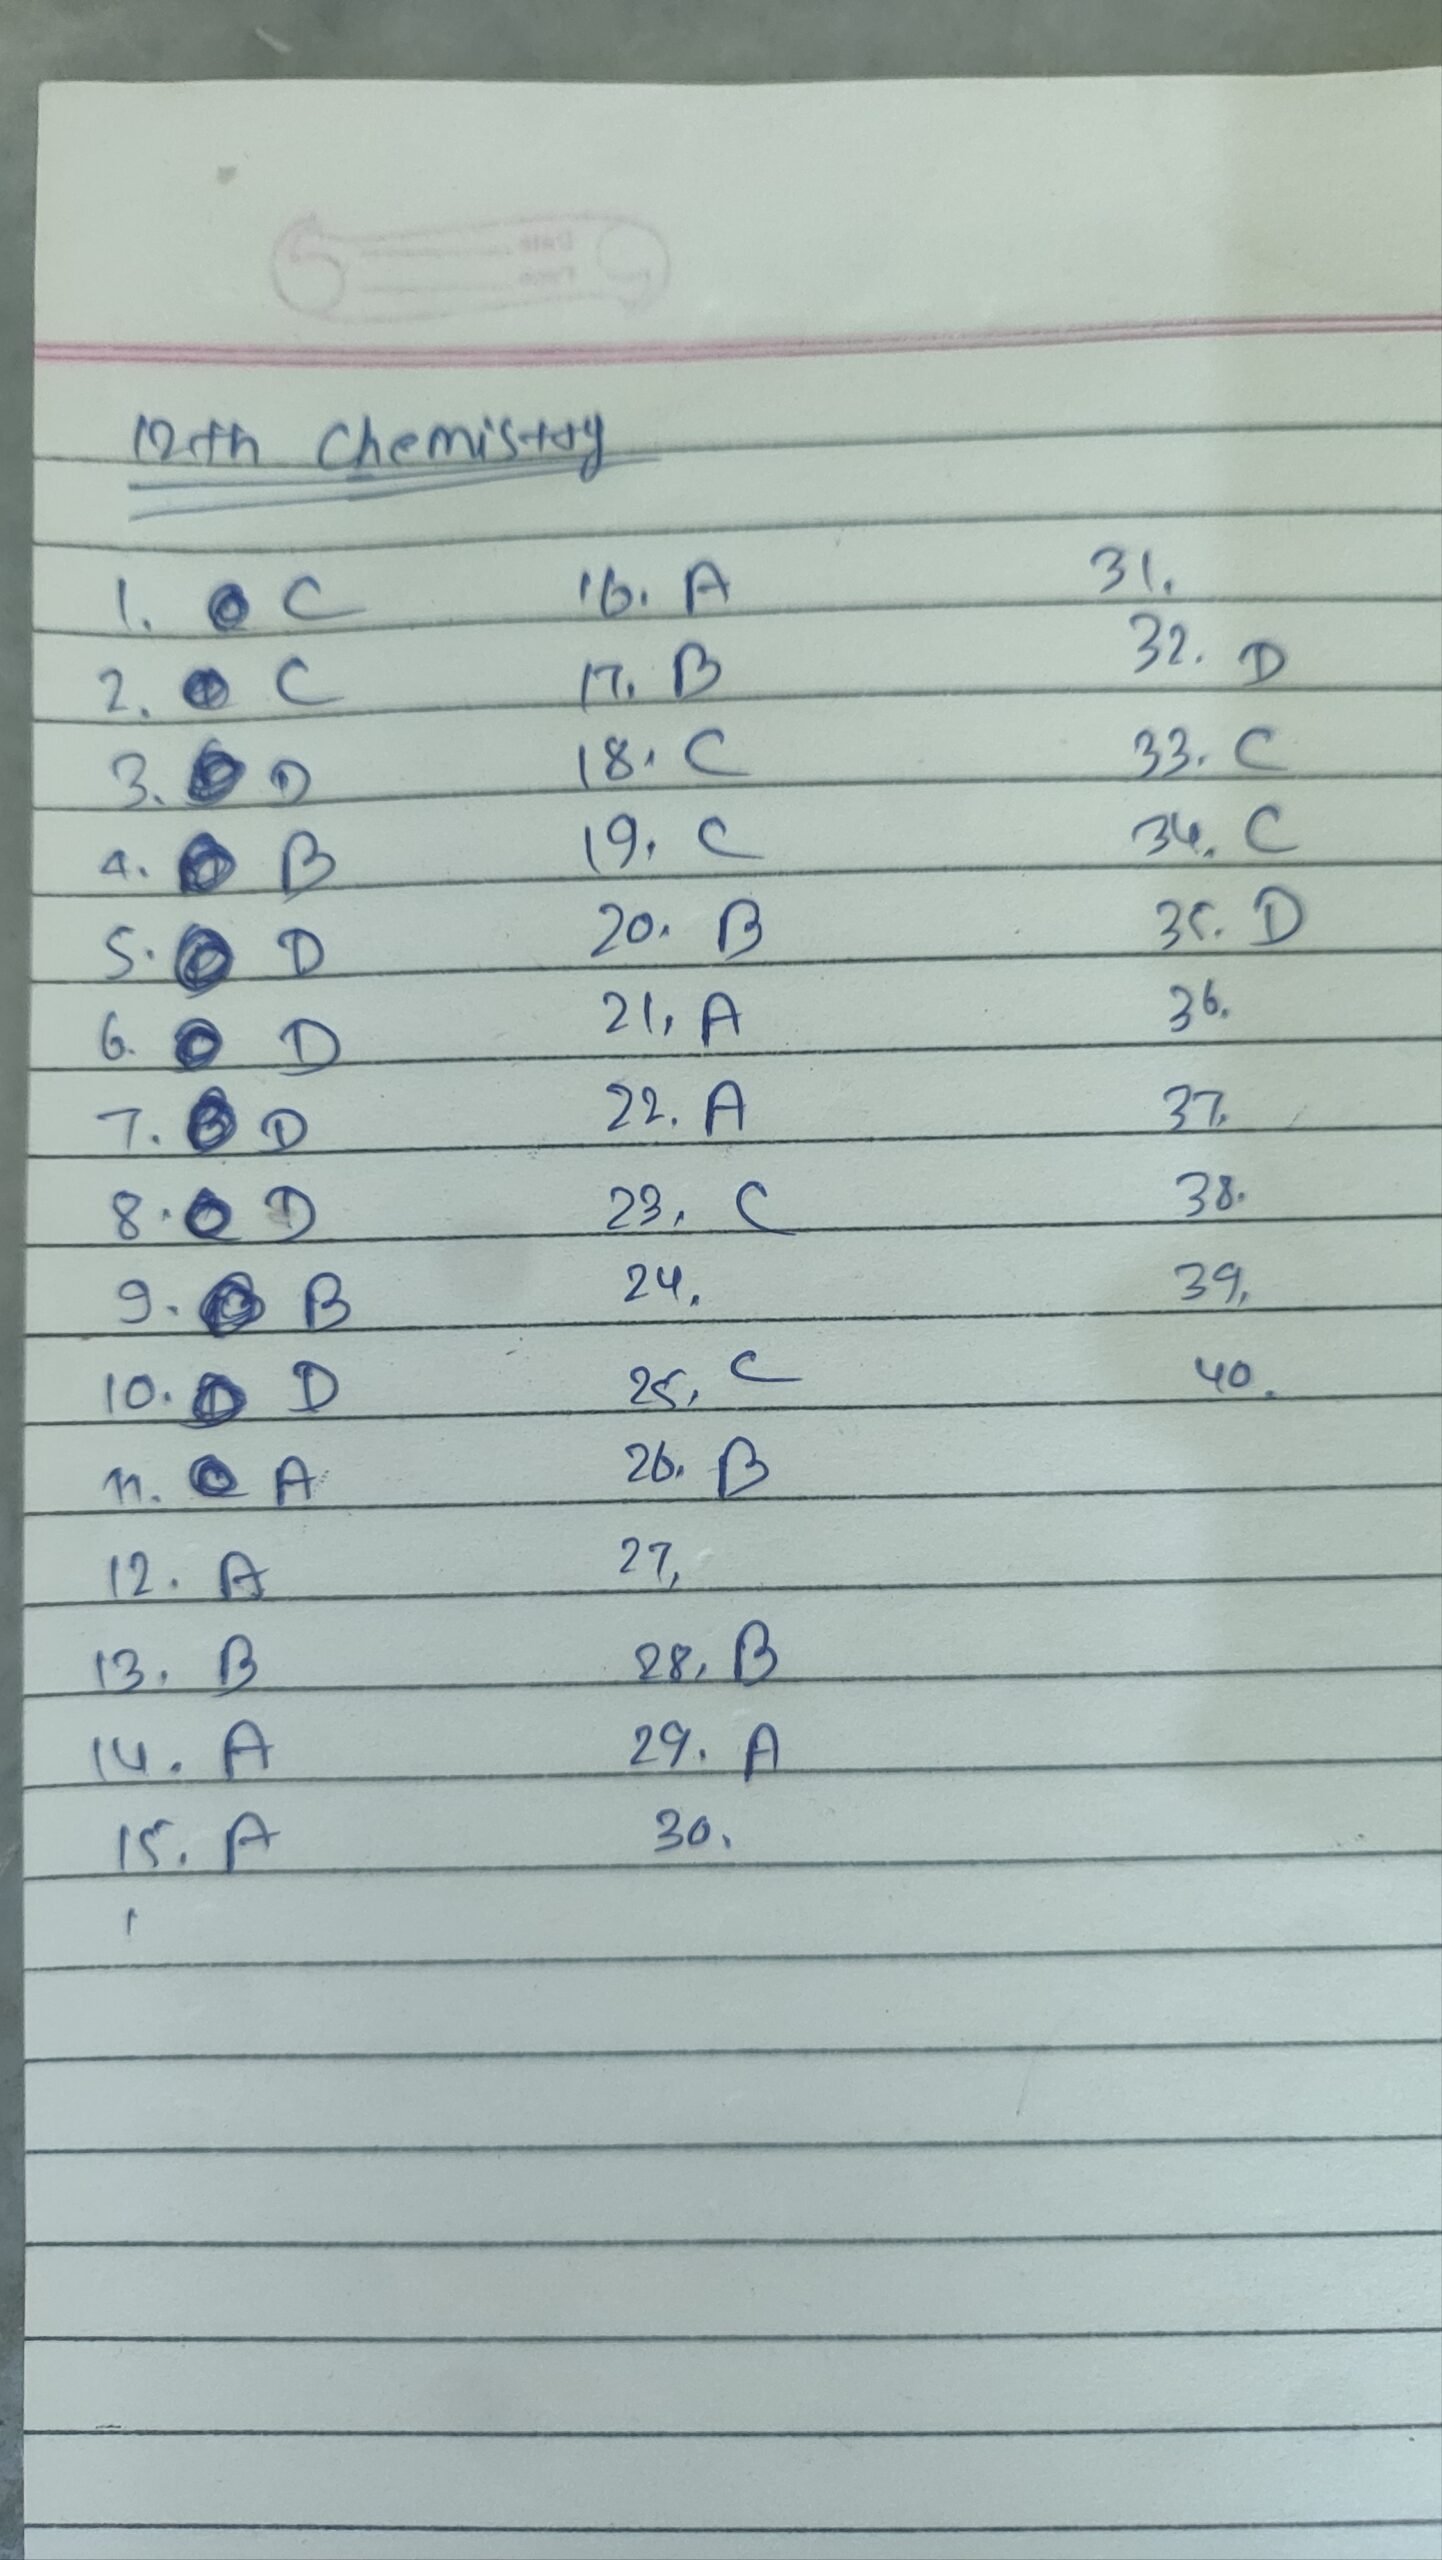 12th Chemistry
1. C
2. C
3. D
4. B
5. D
6. D
7. D
8. D
9. B
10. D
11. A
12. A
13. B
14. A
15. A
16. A
17. B
18. C
19. C
20. B
21. A
22. A
23. C
24.
25. C
26. B
27.
28. B
29. A
30.
31.
32. D
33. C
34. C
35. D
36.
37.
38.
39.
40.